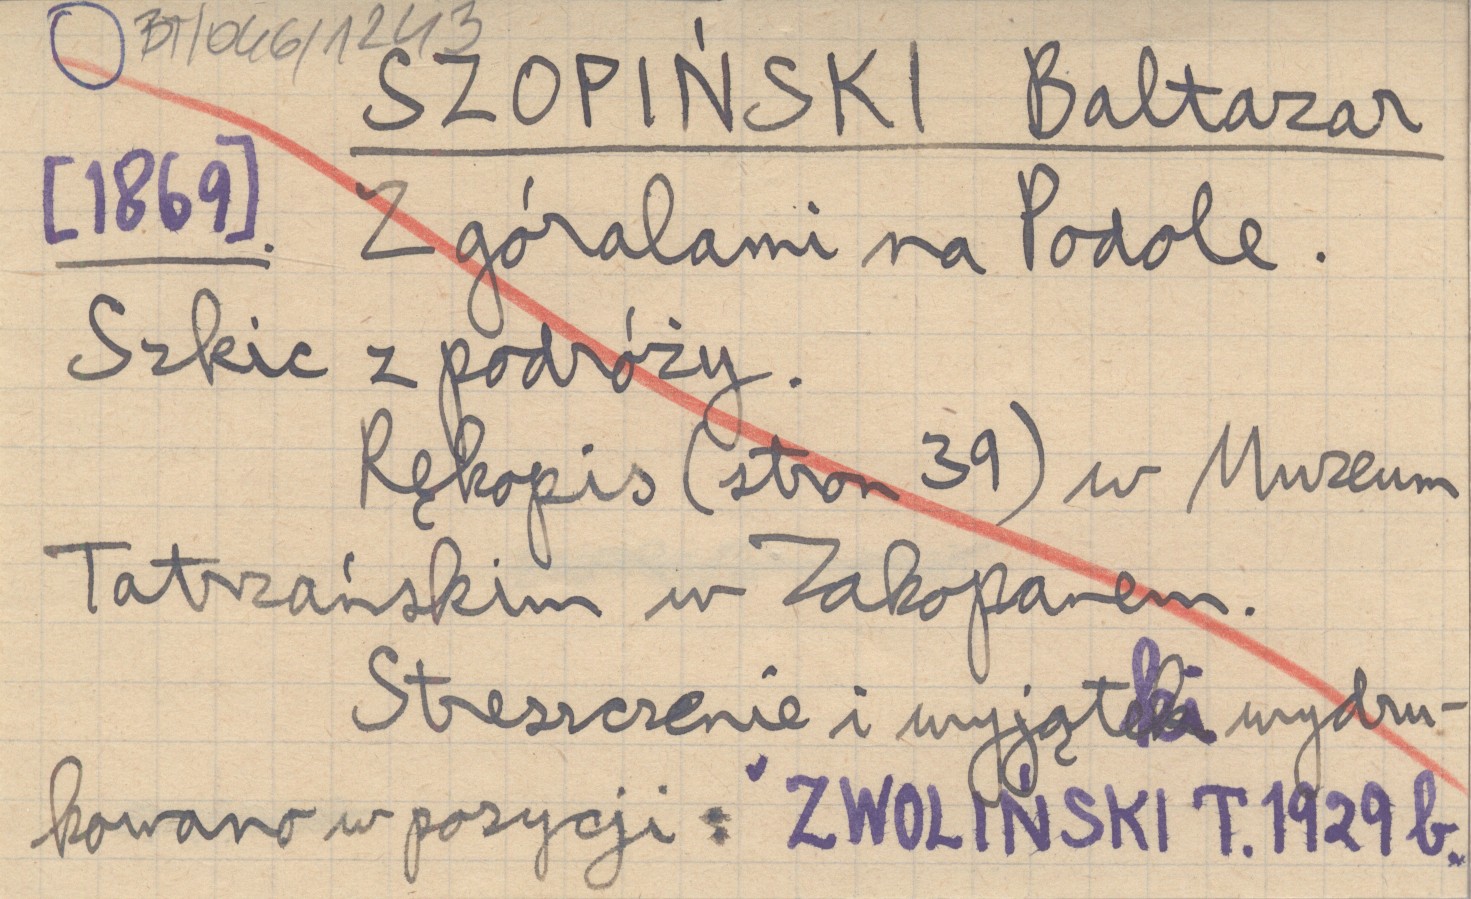 BT/046/1243
SZOPIŃSKI Baltazar
[1869]. Z góralami na Podole.
Szkic z podróży.
Rękopis (stron 39) w Muzeum
Tatrzańskim w Zakopanem.
Streszczenie i wyjątki wydru-
kowano w pozycji: ZWOLIŃSKI T. 1929 b.